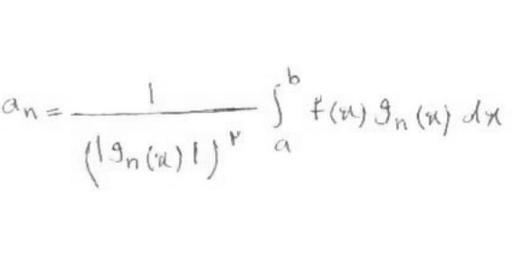 aₙ = 1 / (|gₙ(x)|)^۲ ∫ₐᵇ f(x) gₙ(x) dx